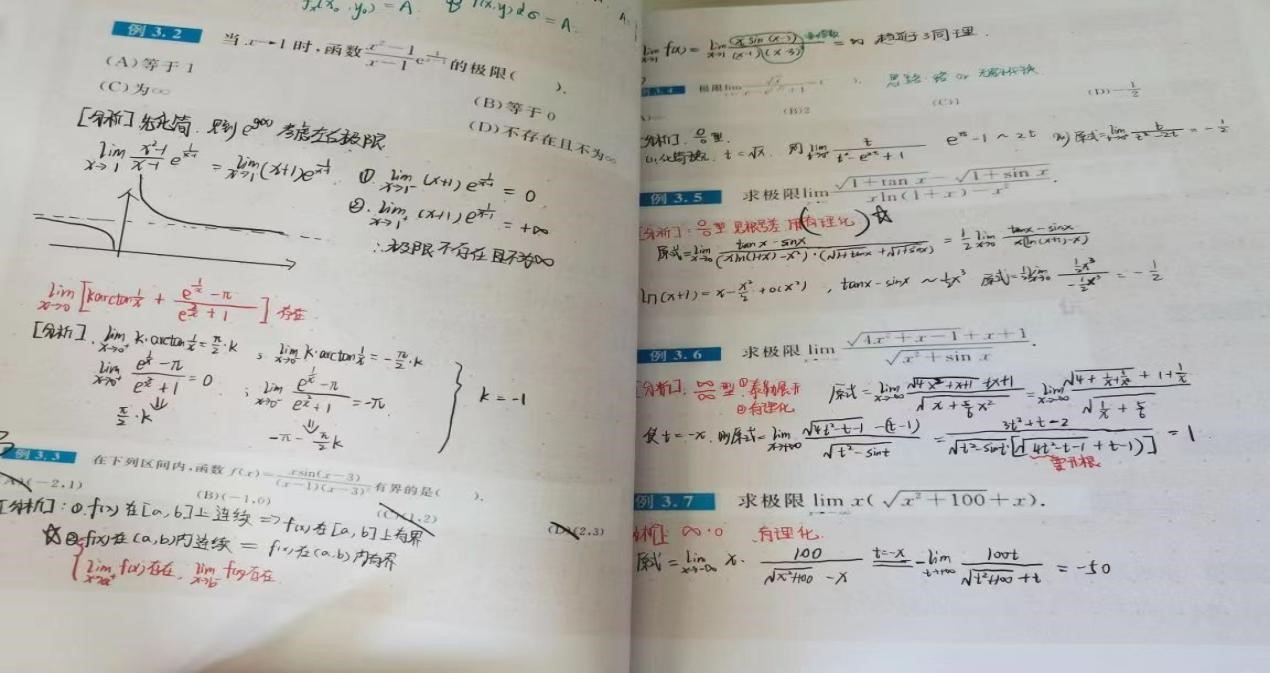 fₓ(x₀, y₀) = A.
f(x,y)dσ = A.
例 3.2 当 x→1 时,函数 \frac{x²-1}{x-1} e^{\frac{1}{x-1}} 的极限( ).
(A)等于 1
(B)等于 0
(C)为∞
(D)不存在且不为∞
[分析] 先化简. 见到 e^{g(x)} 考虑左右极限
lim_{x→1} \frac{x²-1}{x-1} e^{\frac{1}{x-1}} = lim_{x→1} (x+1)e^{\frac{1}{x-1}} ①. lim_{x→1⁻} (x+1) e^{\frac{1}{x-1}} = 0
②. lim_{x→1⁺} (x+1) e^{\frac{1}{x-1}} = +∞
∴极限不存在且不为∞
lim_{x→0} [k·arctan\frac{1}{x} + \frac{e^{\frac{1}{x}} - π}{e^{\frac{2}{x}} + 1}] 存在
[分析]. lim_{x→0⁺} k·arctan\frac{1}{x} = \frac{π}{2}·k ; lim_{x→0⁻} k·arctan\frac{1}{x} = -\frac{π}{2}·k
lim_{x→0⁺} \frac{e^{\frac{1}{x}} - π}{e^{\frac{2}{x}} + 1} = 0 ; lim_{x→0⁻} \frac{e^{\frac{1}{x}} - π}{e^{\frac{2}{x}} + 1} = -π } k = -1
\frac{π}{2}·k
-π - \frac{π}{2}k
例 3.3 在下列区间内,函数 f(x)=\frac{xsin(x-3)}{(x-1)(x-3)²} 有界的是( ).
(A)(-2,1) (B)(-1,0) (C)(1,2) (D)(2,3)
[分析]: ①. f(x) 在 [a,b] 上连续 => f(x) 在 [a,b] 上有界
☆ ②. f(x) 在 (a,b) 内连续 = f(x) 在 (a,b) 内有界
{ lim_{x→a⁺} f(x) 存在, lim_{x→b⁻} f(x) 存在
lim_{x→1} f(x) = lim_{x→1} \frac{x sin(x-3)}{(x-1)(x-3)²} = ∞ 趋近于3同理.
例 3.4 极限 lim
(B)2 (C)1 (D)-\frac{1}{2}
分析]. \frac{0}{0} 型.
t = √x, 则 lim \frac{t}{t² - e^{2t} + 1} e^{2t} - 1 ~ 2t 则原式 = lim \frac{t}{t² - 2t} = -\frac{1}{2}
例 3.5 求极限 lim \frac{\sqrt{1+tan x} - \sqrt{1+sin x}}{xln(1+x) - x²}.
[分析]: \frac{0}{0} 型 见根号差 用(有理化) ☆
原式 = lim_{x→0} \frac{tan x - sin x}{(xln(1+x) - x²)·(\sqrt{1+tanx} + \sqrt{1+sinx})} = \frac{1}{2} lim_{x→0} \frac{tanx - sinx}{x(ln(x+1) - x)}
ln(x+1) = x - \frac{x²}{2} + o(x²), tanx - sinx ~ \frac{1}{2}x³ 原式 = \frac{1}{2} lim_{x→0} \frac{\frac{1}{2}x³}{-\frac{1}{2}x³} = -\frac{1}{2}
例 3.6 求极限 lim \frac{\sqrt{4x²+x-1}+x+1}{\sqrt{x²+sin x}}.
[分析]. \frac{∞}{∞} 型 ①泰勒展开
②有理化
原式 = lim_{x→-∞} \frac{\sqrt{4x²+x+1}+x+1}{\sqrt{x+\frac{5}{6}x²}} = lim_{x→-∞} \frac{\sqrt{4+\frac{1}{x}+\frac{1}{x²}}+1+\frac{1}{x}}{\sqrt{\frac{1}{x}+\frac{5}{6}}}
使 t = -x, 则原式 = lim_{t→+∞} \frac{\sqrt{4t²-t-1} - (t-1)}{\sqrt{t²-sint}} = \frac{3t²+t-2}{\sqrt{t²-sint}[\sqrt{4t²-t-1}+t-1)]} = 1
例 3.7 求极限 lim x( \sqrt{x²+100} + x).
分析]. ∞·0 有理化.
原式 = lim_{x→-∞} x· \frac{100}{\sqrt{x²+100} - x} \overset{t=-x}{=} -lim_{t→+∞} \frac{100t}{\sqrt{t²+100} + t} = -50